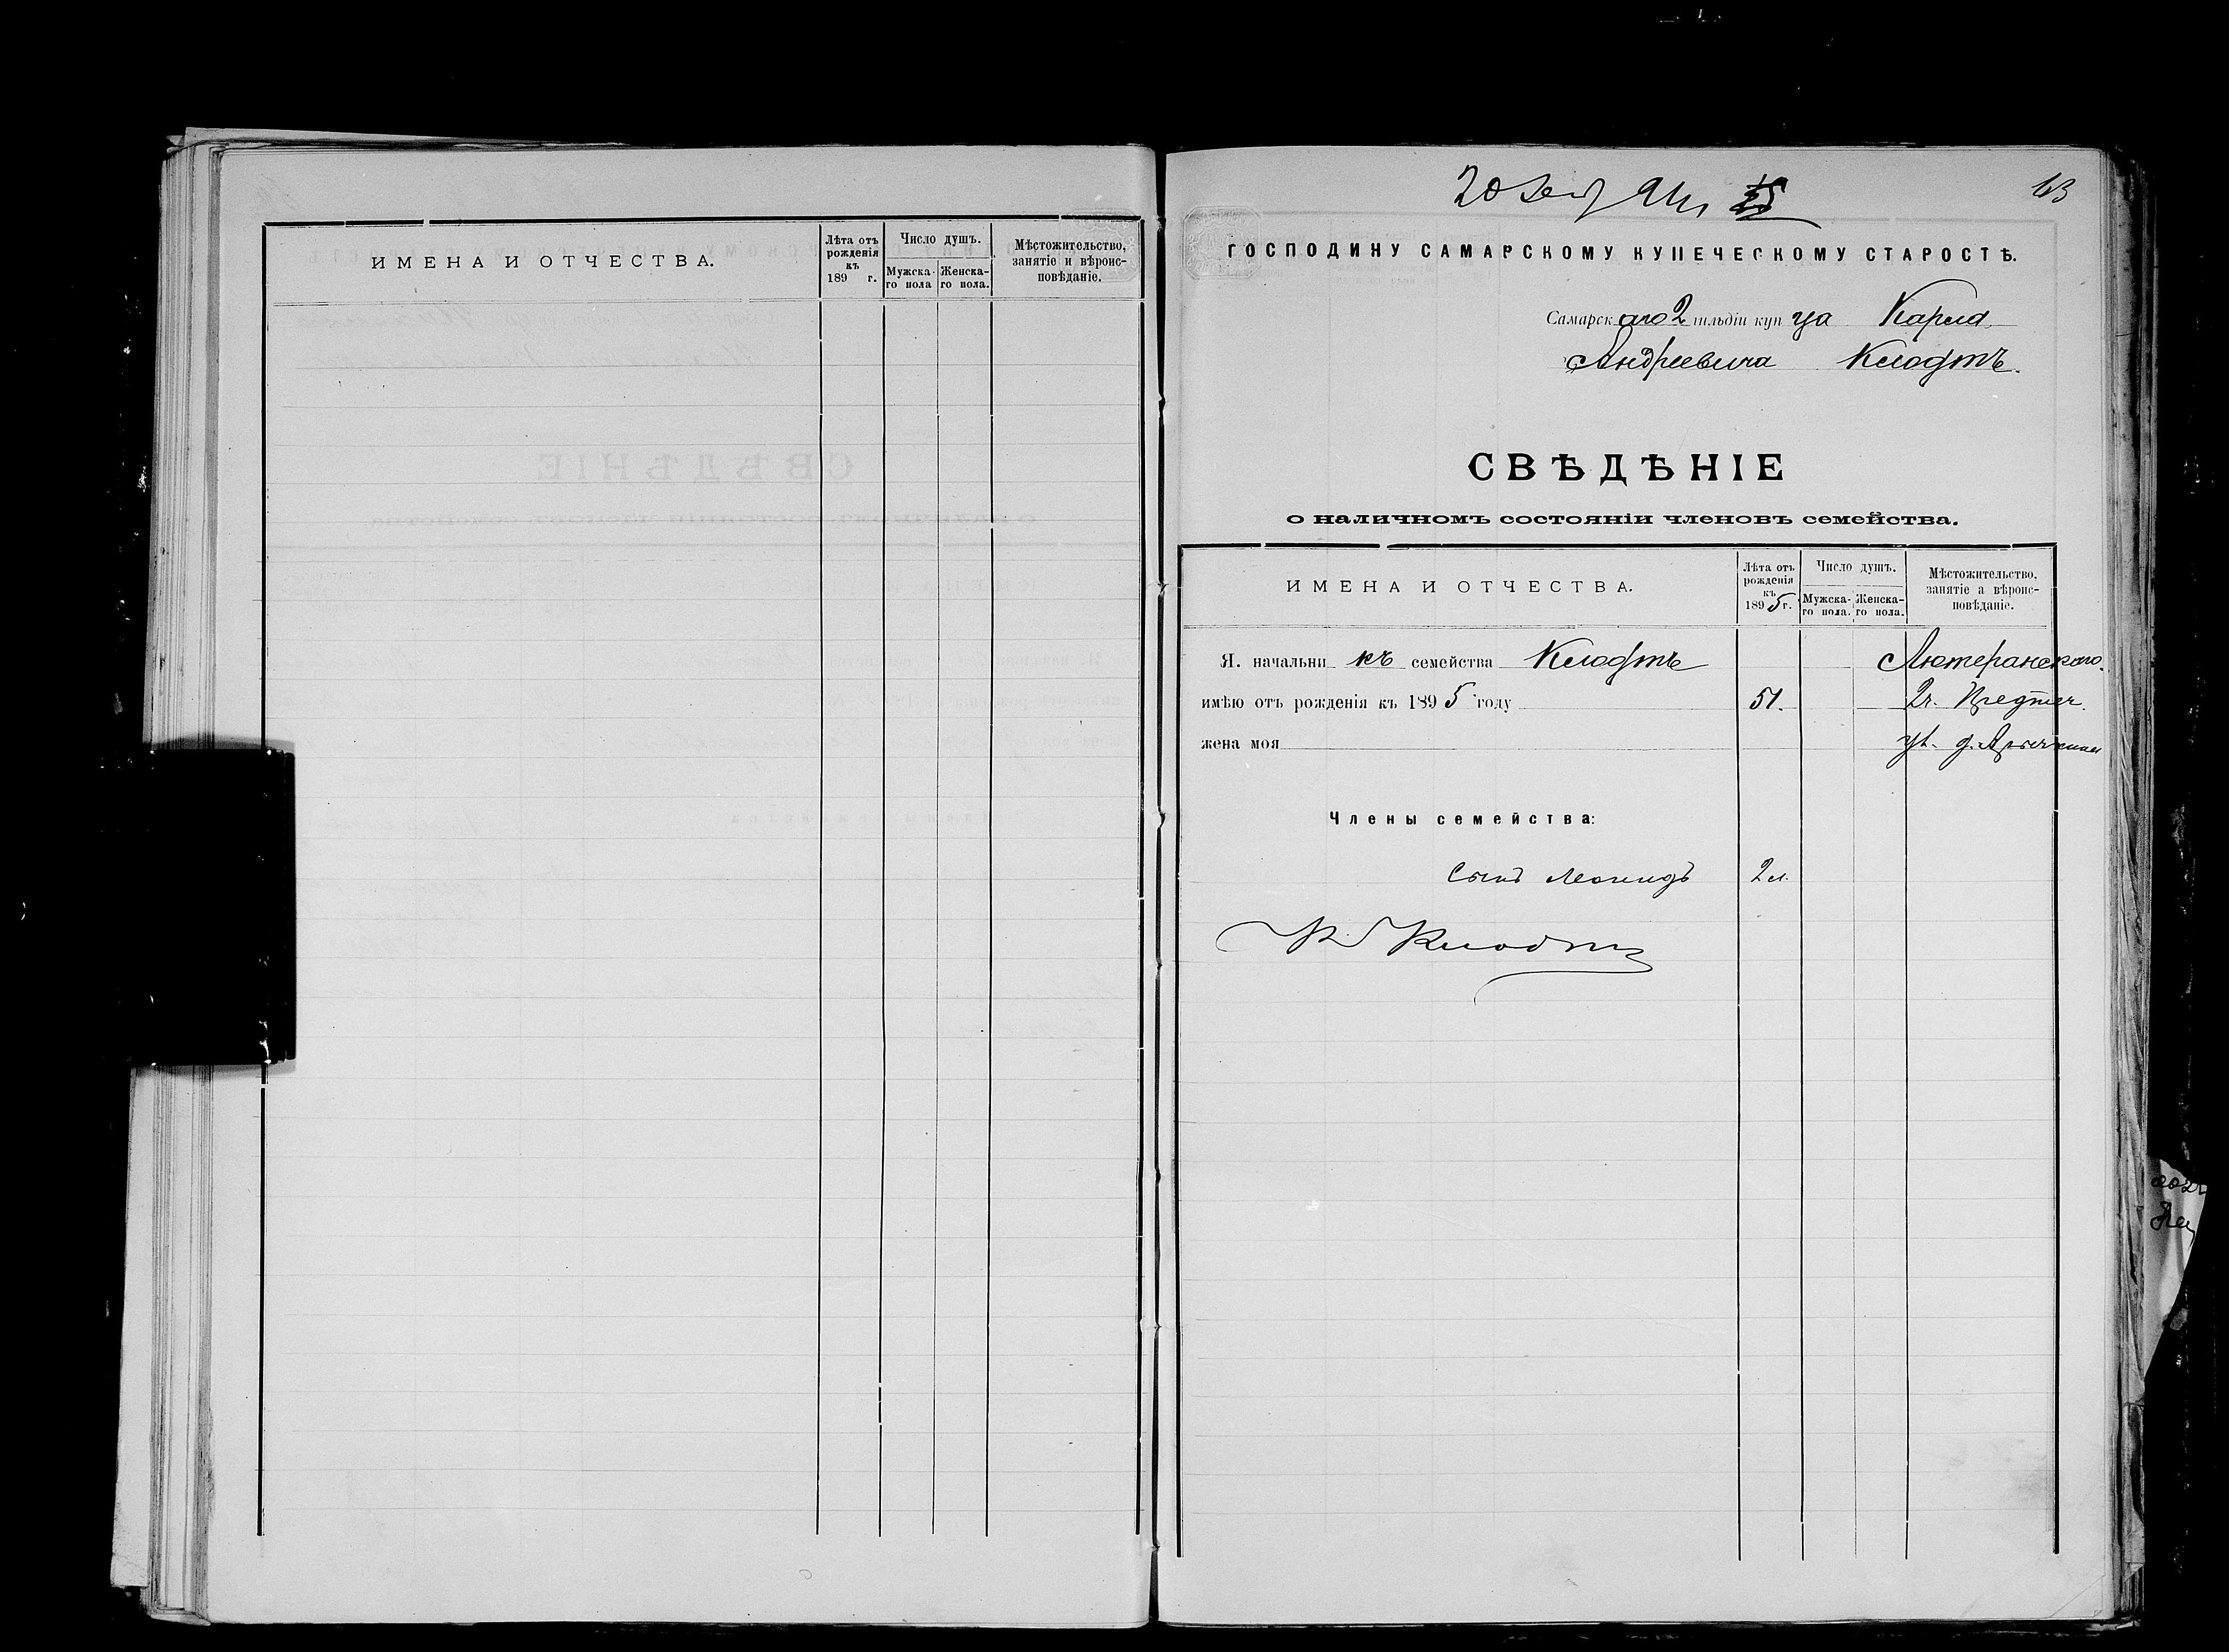 ИМЕНА И ОТЧЕСТВА.
Лѣта отъ рожденія къ 189 г.
Число душъ.
Мужска-го пола
Женска-го пола.
Мѣстожительство, занятіе и вѣроис-повѣданіе.
20
43
ГОСПОДИНУ САМАРСКОМУ КУПЕЧЕСКОМУ СТАРОСТѢ.
Самарскаго 2 гильдіи купца Карла
Андреевича Клодтъ.
СВѢДѢНІЕ
о наличномъ состояніи членовъ семейства.
ИМЕНА И ОТЧЕСТВА.
Лѣта отъ рожденія къ 1895 г.
Число душъ.
Мужска-го пола.
Женска-го пола.
Мѣстожительство, занятіе а вѣроис-повѣданіе.
Я. начальникъ семейства Клодтъ Лютеранского.
имѣю отъ рожденія къ 1895 году 51. 2ч. Предтеч.
жена моя ул. д.
Члены семейства:
Сынъ Леонидъ 2 л.
К Клодтъ